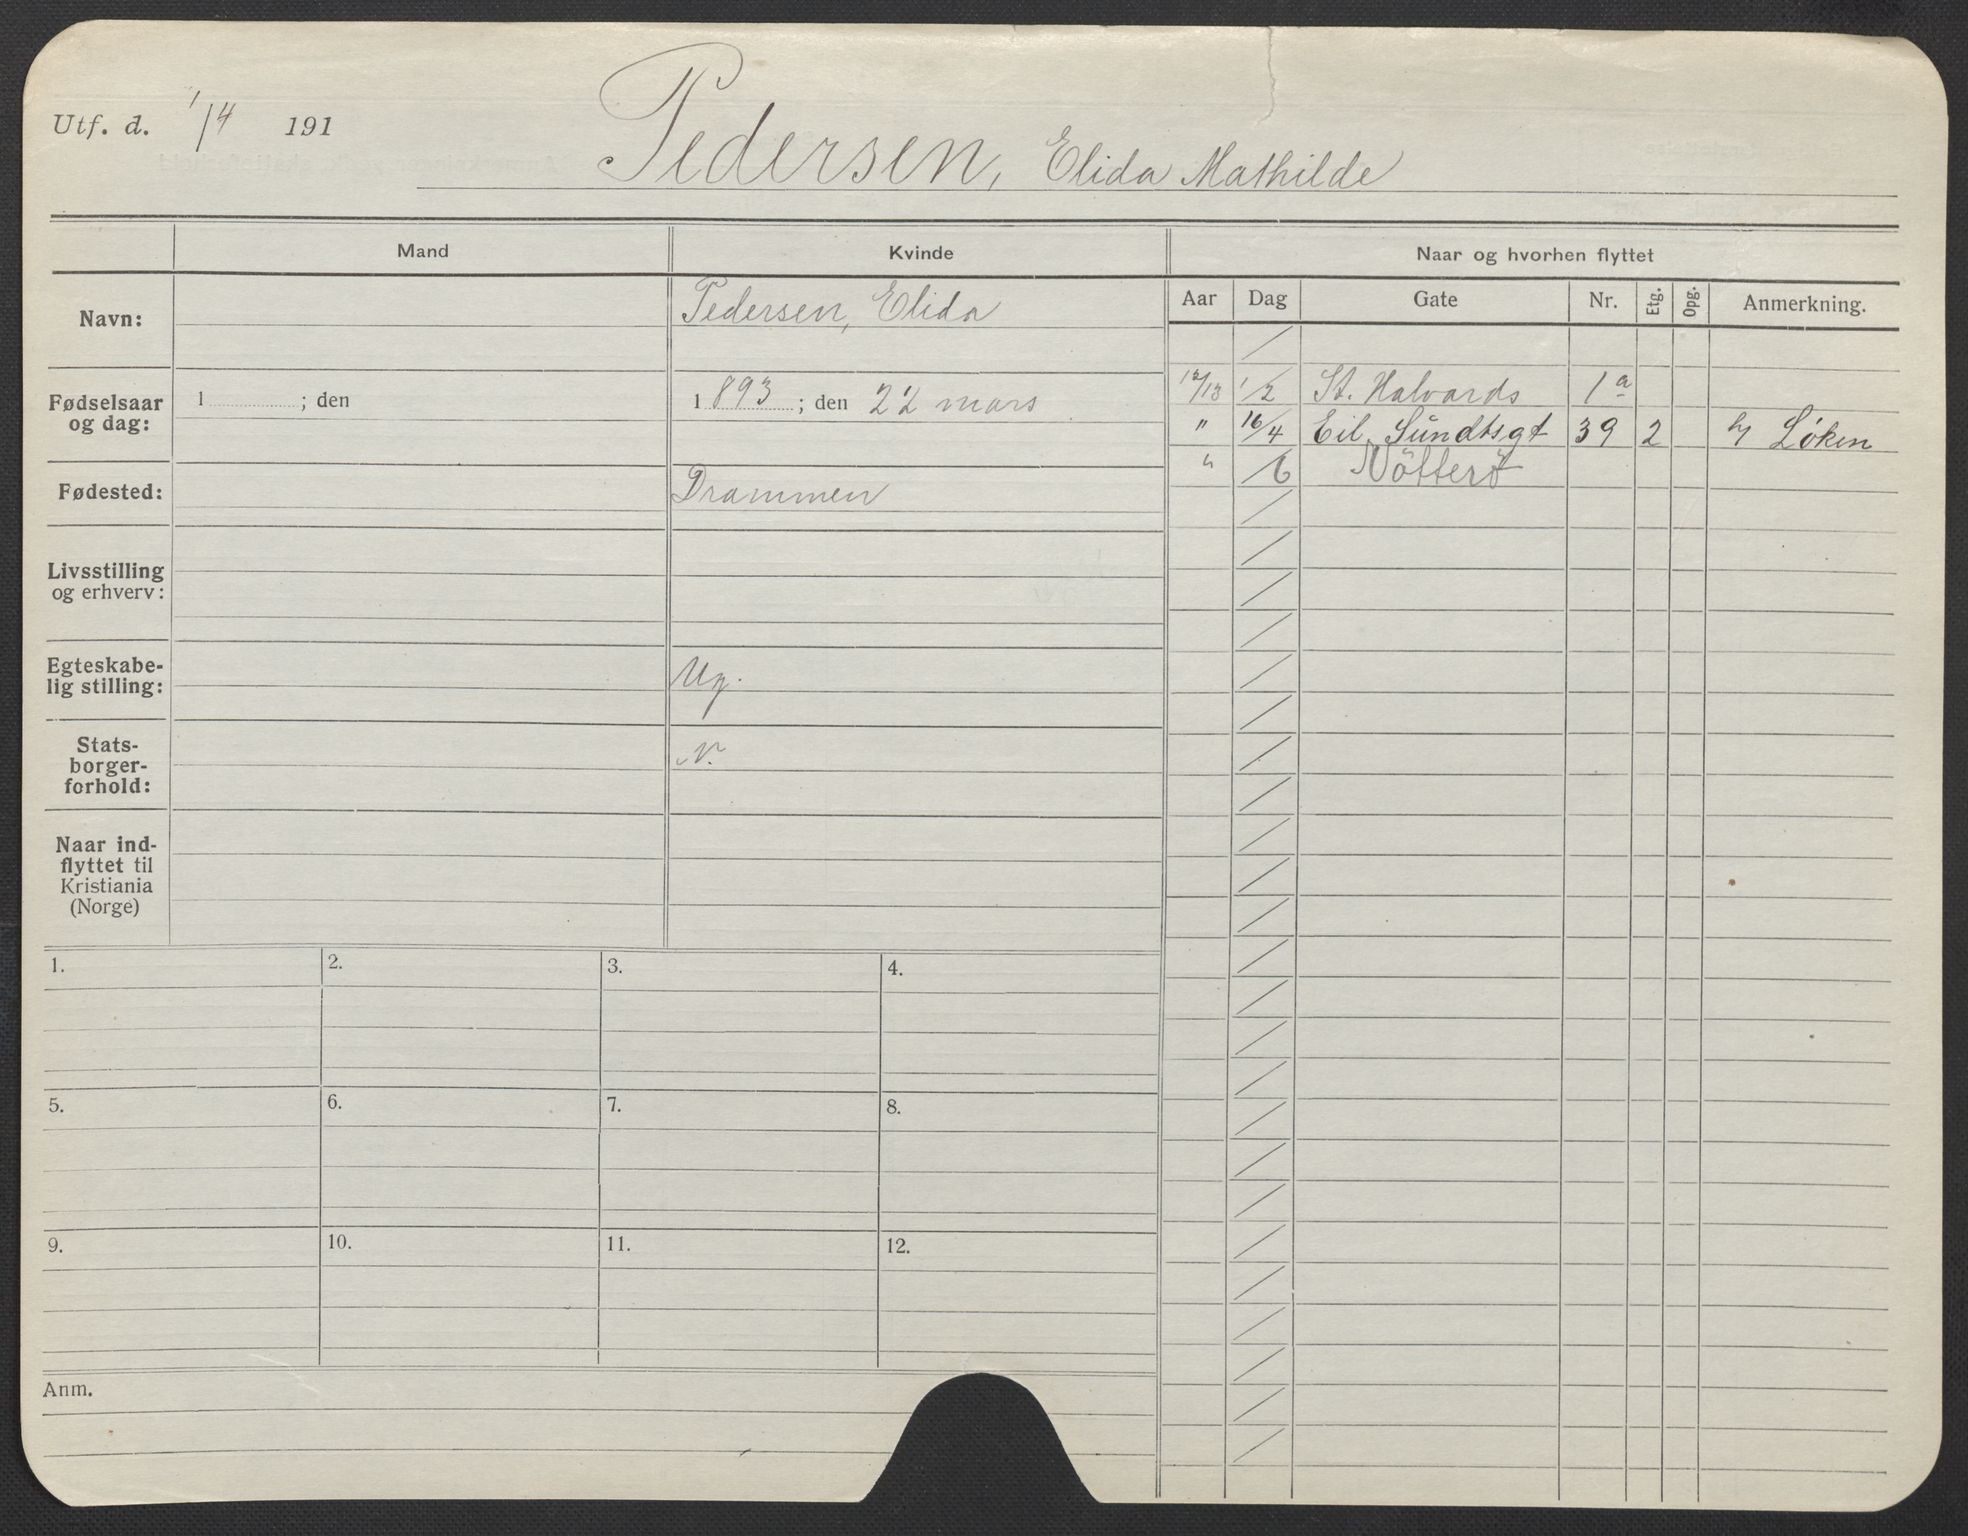 Utf. d. 1/4 191
Pedersen, Elida Mathilde
Mand
Kvinde
Naar og hvorhen flyttet
Navn:
Pedersen, Elida
Aar Dag Gate Nr. Etg. Opg. Anmerkning.
Fødselsaar og dag:
1 ; den
1893 ; den 22 mars
12/13 1/2 St. Halvards 1a
" 16/4 Eil. Sundtsgt 39 2 Løken
" /6 Nötterö
Fødested:
Drammen
Livsstilling
og erhverv:
Egteskabe-
lig stilling:
Ug.
Stats-
borger-
forhold:
N.
Naar ind-
flyttet til
Kristiania
(Norge)
1. 2. 3. 4.
5. 6. 7. 8.
9. 10. 11. 12.
Anm.